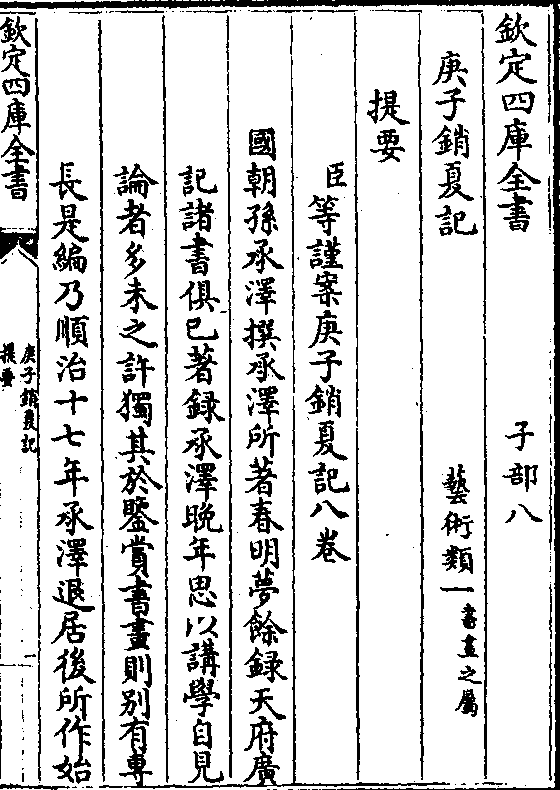 欽定四庫全書　子部八
庚子銷夏記　藝術類一書畫之屬
提要
臣等謹案庚子銷夏記八卷
國朝孫承澤撰承澤所著春明夢餘録天府廣
記諸書俱已著録承澤晚年思以講學自見
論者多未之許獨其於鑒賞書畫則别有專
長是編乃順治十七年承澤退居後所作始
欽定四庫全書
庚子銷夏記
提要